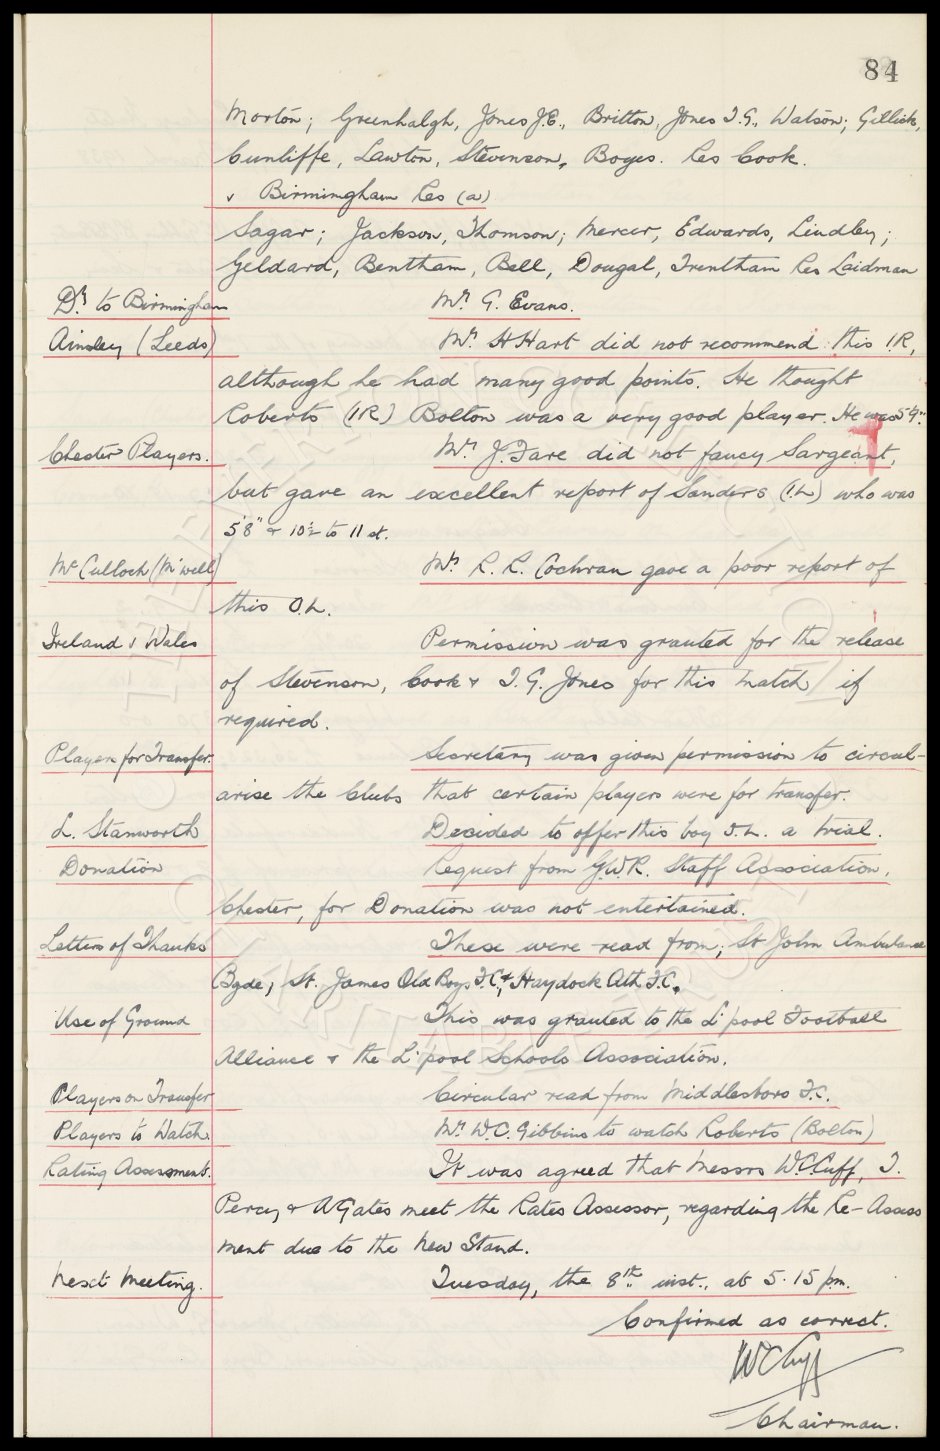 84
Morton; Greenhalgh, Jones J.E., Britton, Jones T.G., Watson; Gillick,
Cunliffe, Lawton, Stevenson, Boyes. Res Cook.
v Birmingham Res (a)
Sagar; Jackson, Thomson; Mercer, Edwards, Lindley;
Geldard, Bentham, Bell, Dougal, Trentham Res Laidman
Dr to Birmingham Mr. G. Evans.
Ainsley (Leeds) Mr. H Hart did not recommend this I.R,
although he had many good points. He thought
Roberts (IR) Bolton was a very good player. He was 5'9".
Chester Players. Mr. J. Fare did not fancy Sargeant,
but gave an excellent report of Sanders (I.L) who was
5'8" & 10½ to 11 st.
McCulloch (M'well) Mr. R. R. Cochran gave a poor report of
this O.L.
Ireland v Wales Permission was granted for the release
of Stevenson, Cook & T. G. Jones for this match if
required.
Players for Transfer. Secretary was given permission to circul-
arise the Clubs that certain players were for transfer.
L. Stanworth Decided to offer this boy I.L. a trial.
Donation Request from G.W.R. Staff Association,
Chester, for Donation was not entertained.
Letters of Thanks These were read from; St John Ambulance
Bgde, St. James Old Boys F.C, & Haydock Ath F.C.
Use of Ground This was granted to the L'pool Football
Alliance & the L'pool Schools Association.
Players on Transfer Circular read from Middlesboro F.C.
Players to Watch. Mr. W.C. Gibbins to watch Roberts (Bolton)
Rating Assessment. It was agreed that Messrs W.C. Cuff, T.
Percy & A Gates meet the Rates Assessor, regarding the Re-Assess
ment due to the New Stand.
Next Meeting. Tuesday, the 8th inst., at 5.15 pm.
Confirmed as correct.
W C Cuff
Chairman.